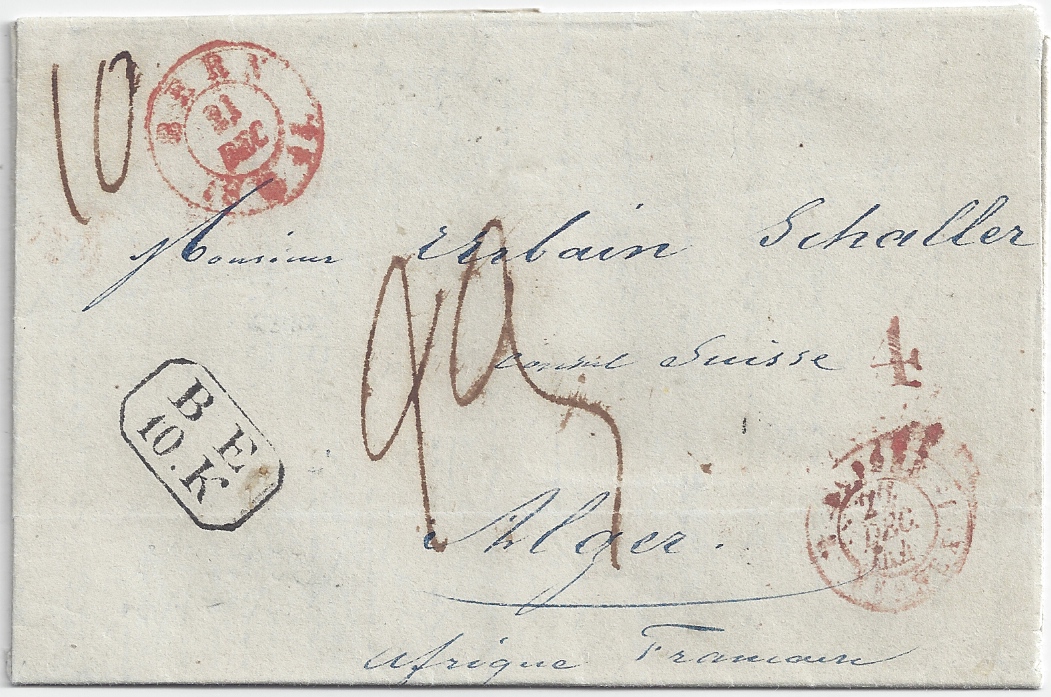 10
BERN
21
DEC
Monsieur Urbain Schaller
consul Suisse
4
BE
10.K
23.
DEC.
44
Alger.
Afrique Francaise